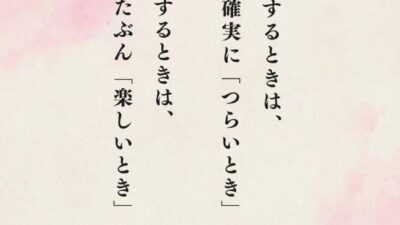 するときは、
確実に「つらいとき」
するときは、
たぶん「楽しいとき」